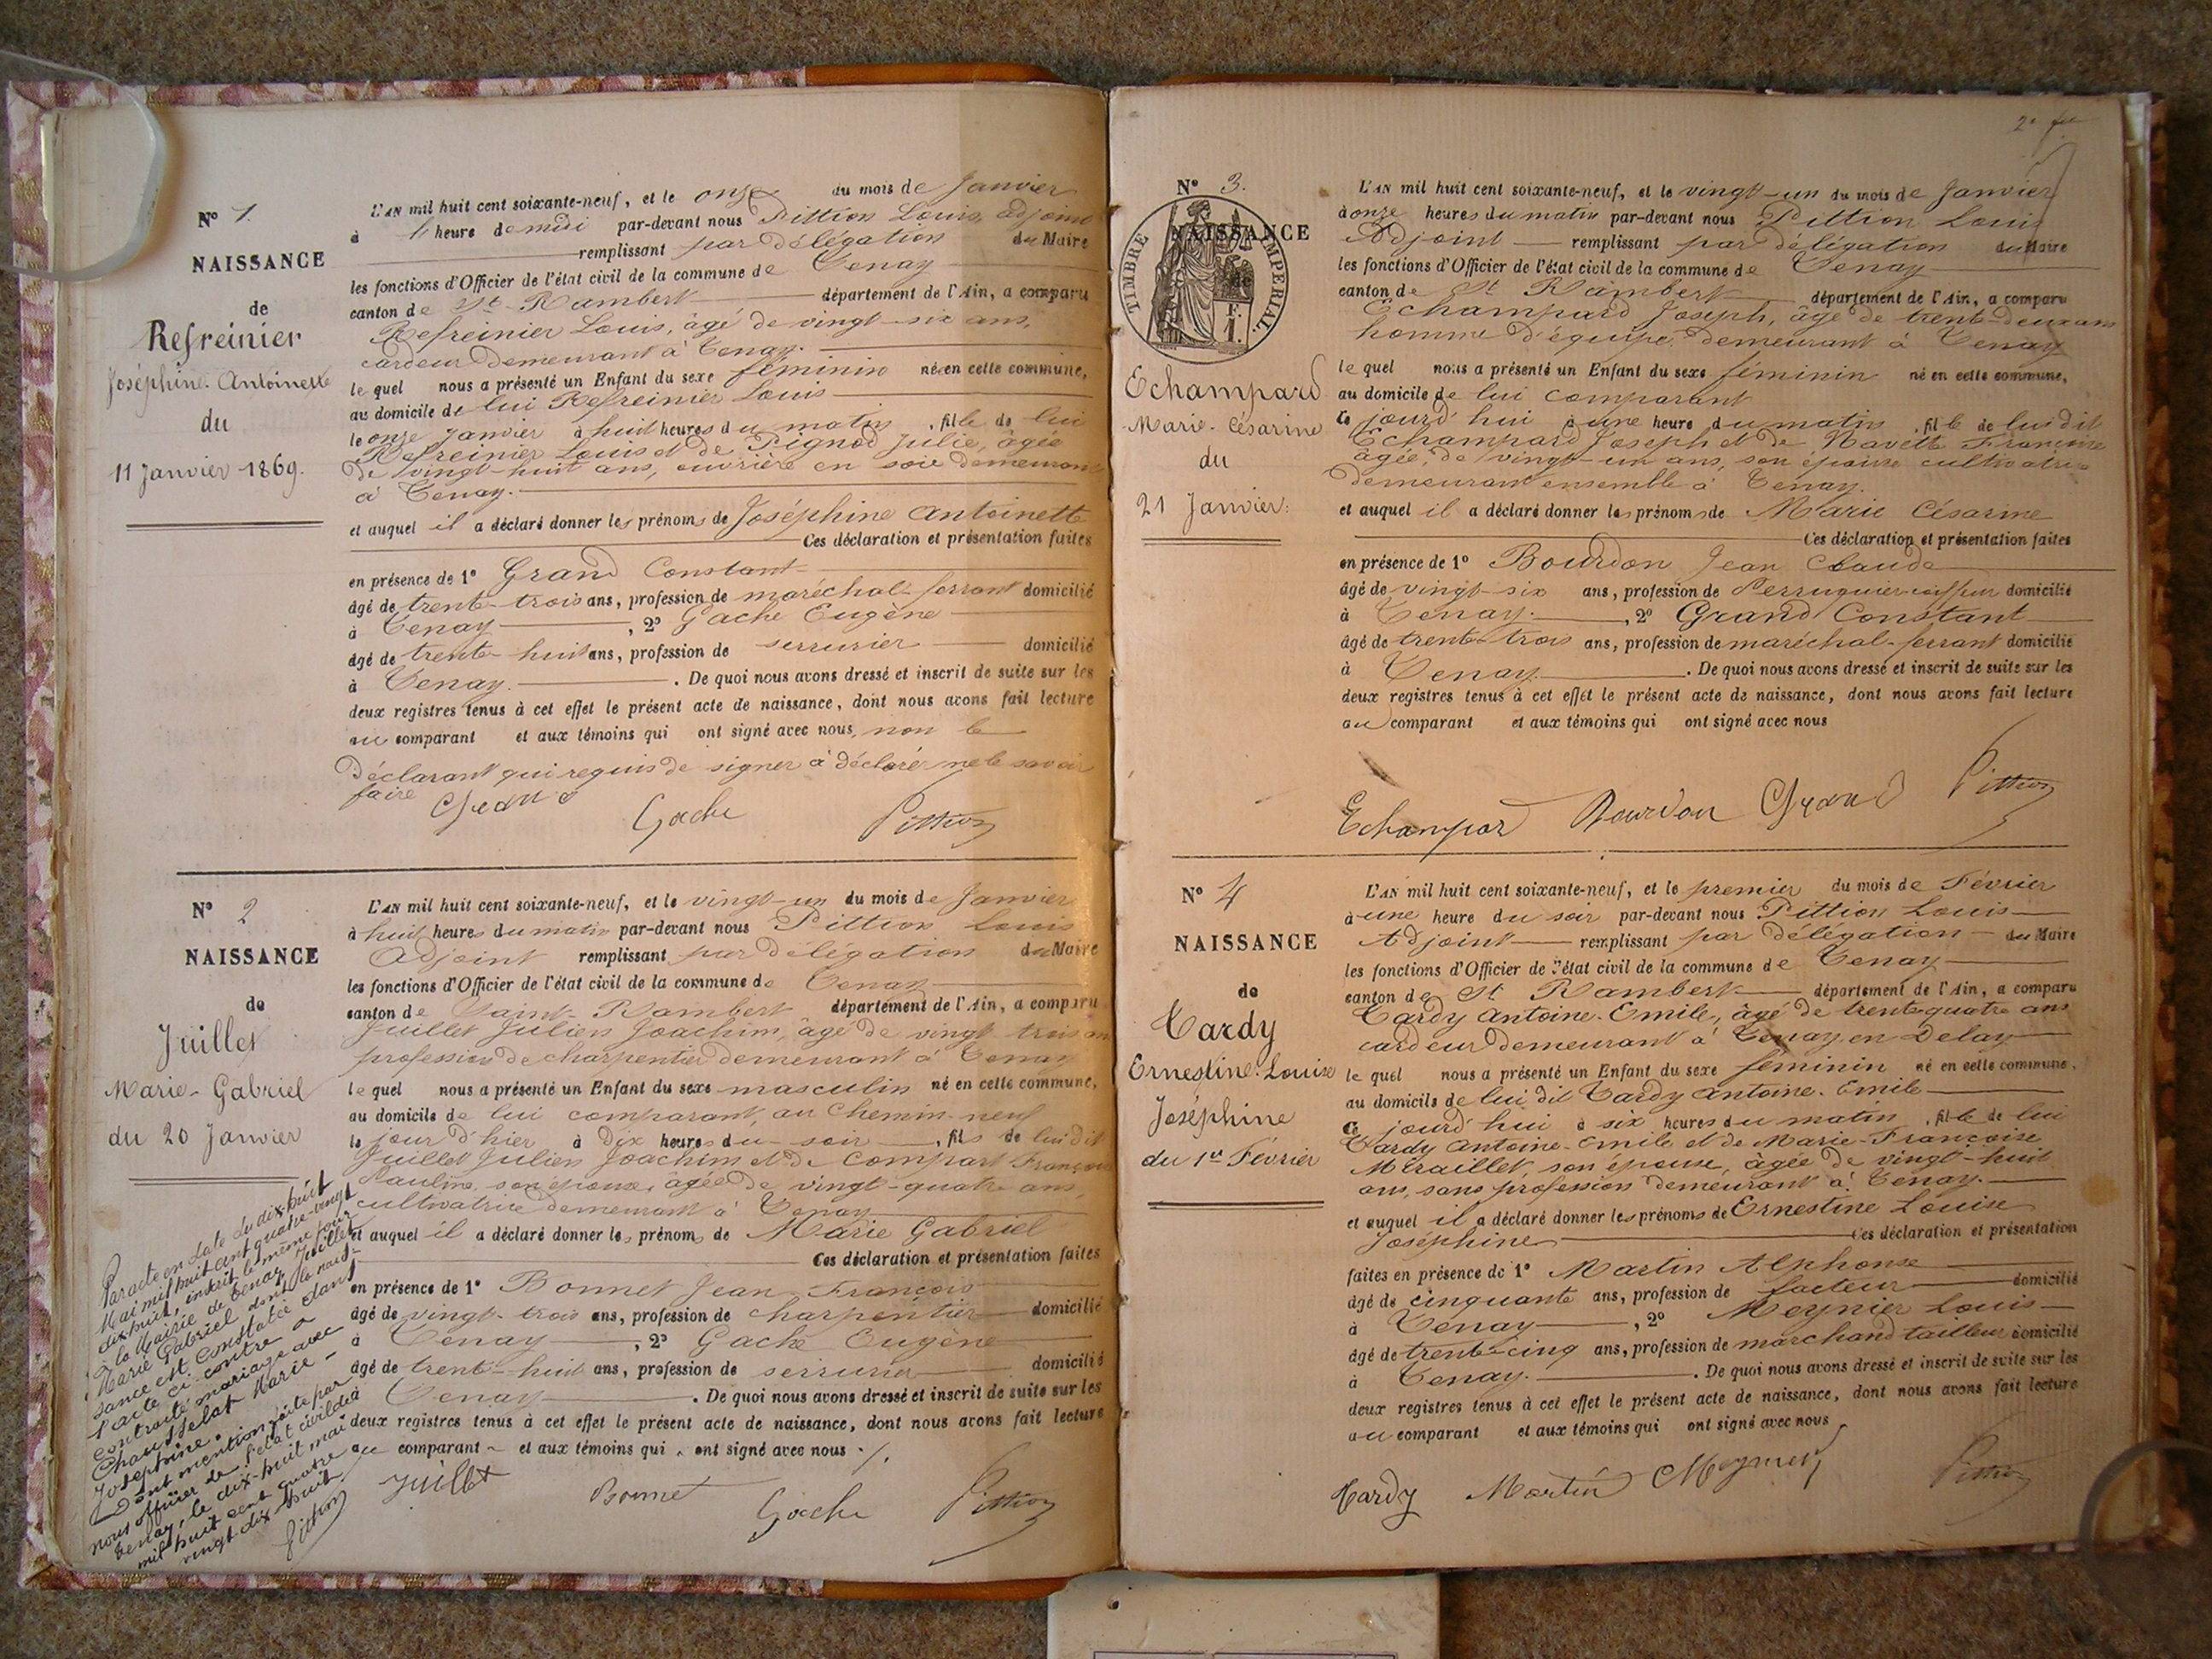 N° 1.
NAISSANCE
de
Refreinier
Joséphine Antoinette
du
11 Janvier 1869.
L'AN mil huit cent soixante-neuf, et le onze du mois de Janvier
à heure de midi par-devant nous Pittion Louis, adjoint
remplissant par délégation du Maire
les fonctions d'Officier de l'état civil de la commune de Tenay
canton de St. Rambert département de l'Ain, a comparu
Refreinier Louis, âgé de vingt-six ans,
cardeur demeurant à Tenay.
le quel nous a présenté un Enfant du sexe féminin né en cette commune,
au domicile de lui Refreinier Louis
le onze janvier à huit heures du matin, fille de lui
Refreinier Louis et de Pignod Julie, âgée
de vingt-huit ans, ouvrière en soie demeurant
à Tenay.
et auquel il a déclaré donner les prénoms de Joséphine Antoinette
Ces déclaration et présentation faites
en présence de 1° Grand Constant
âgé de trente-trois ans, profession de maréchal-ferrant domicilié
à Tenay, 2° Gache Eugène
âgé de trente-huit ans, profession de serrurier domicilié
à Tenay. De quoi nous avons dressé et inscrit de suite sur les
deux registres tenus à cet effet le présent acte de naissance, dont nous avons fait lecture
au comparant et aux témoins qui ont signé avec nous, non le
déclarant qui requis de signer à déclaré ne le savoir
faire Grand Gache Pittion
N° 2
NAISSANCE
de
Juillet
Marie-Gabriel
du 20 Janvier
L'AN mil huit cent soixante-neuf, et le vingt-un du mois de Janvier
à huit heures du matin par-devant nous Pittion Louis
Adjoint remplissant par délégation du Maire
les fonctions d'Officier de l'état civil de la commune de Tenay
canton de Saint-Rambert département de l'Ain, a comparu
Juillet Julien Joachim, âgé de vingt trois ans
profession de charpentier demeurant à Tenay
le quel nous a présenté un Enfant du sexe masculin né en cette commune,
au domicile de lui comparant, au Chemin-neuf
le jour d'hier à dix heures du soir, fils de lui dit
Juillet Julien Joachim et de Compart Françoise
Pauline, son épouse, âgée de vingt-quatre ans,
cultivatrice demeurant à Tenay
et auquel il a déclaré donner les prénoms de Marie Gabriel
Ces déclaration et présentation faites
en présence de 1° Bonnet Jean François
âgé de vingt-trois ans, profession de charpentier domicilié
à Tenay, 2° Gache Eugène
âgé de trente-huit ans, profession de serrurier domicilié
à Tenay. De quoi nous avons dressé et inscrit de suite sur les
deux registres tenus à cet effet le présent acte de naissance, dont nous avons fait lecture
au comparant et aux témoins qui ont signé avec nous
Juillet Bonnet Gache Pittion
Par acte en date du dix-huit
Mai mil huit cent quatre-vingt
dix-huit, inscrit le même jour
à la Mairie de Tenay, Juillet
Marie Gabriel dont la nais-
sance est constatée dans
l'acte ci-contre a
contracté mariage avec
Marie-
Joséphine.
Dont mention faite par
nous officier de l'état civil de
Tenay, le dix-huit mai
mil huit cent quatre
vingt dix-huit
Pittion
2e fe
N° 3.
NAISSANCE
de
TIMBRE IMPERIAL.
F.
1.
Echampard
Marie-Césarine
du
21 Janvier.
L'AN mil huit cent soixante-neuf, et le vingt-un du mois de Janvier
à onze heures du matin par-devant nous Pittion Louis
Adjoint remplissant par délégation du Maire
les fonctions d'Officier de l'état civil de la commune de Tenay
canton de St Rambert département de l'Ain, a comparu
Echampard Joseph, âgé de trent-deux ans
homme d'équipe demeurant à Tenay
le quel nous a présenté un Enfant du sexe féminin né en cette commune,
au domicile de lui comparant
ce jourd'hui à une heure du matin, fille de lui dit
Echampard Joseph et de Navette Françoise
âgée, de vingt-un ans, son épouse cultivatrice
demeurant ensemble à Tenay.
et auquel il a déclaré donner les prénoms de Marie Césarine
Ces déclaration et présentation faites
en présence de 1° Bourdon Jean Claude
âgé de vingt-six ans, profession de Perruquier-coiffeur domicilié
à Tenay, 2° Grand Constant
âgé de trente-trois ans, profession de maréchal-ferrant domicilié
à Tenay. De quoi nous avons dressé et inscrit de suite sur les
deux registres tenus à cet effet le présent acte de naissance, dont nous avons fait lecture
au comparant et aux témoins qui ont signé avec nous
Echampard Bourdon Grand Pittion
N° 4
NAISSANCE
de
Tardy
Ernestine-Louise
Joséphine
du 1er Février
L'AN mil huit cent soixante-neuf, et le premier du mois de Février
à une heure du soir par-devant nous Pittion Louis
Adjoint remplissant par délégation du Maire
les fonctions d'Officier de l'état civil de la commune de Tenay
canton de St Rambert département de l'Ain, a comparu
Tardy Antoine-Emile, âgé de trente quatre ans
cardeur demeurant à Tenay, en Delay
le quel nous a présenté un Enfant du sexe féminin né en cette commune,
au domicile de lui dit Tardy Antoine-Emile
ce jourd'hui à six heures du matin, fille de lui
Tardy Antoine-Emile et de Marie-Françoise
Miraillet, son épouse, âgée de vingt-huit
ans, sans profession demeurant à Tenay.
et auquel il a déclaré donner les prénoms de Ernestine Louise
Joséphine Ces déclaration et présentation
faites en présence de 1° Martin Alphonse
âgé de cinquante ans, profession de facteur domicilié
à Tenay, 2° Meynier Louis
âgé de trente-cinq ans, profession de marchand tailleur domicilié
à Tenay. De quoi nous avons dressé et inscrit de suite sur les
deux registres tenus à cet effet le présent acte de naissance, dont nous avons fait lecture
au comparant et aux témoins qui ont signé avec nous
Tardy Martin Meynier Pittion